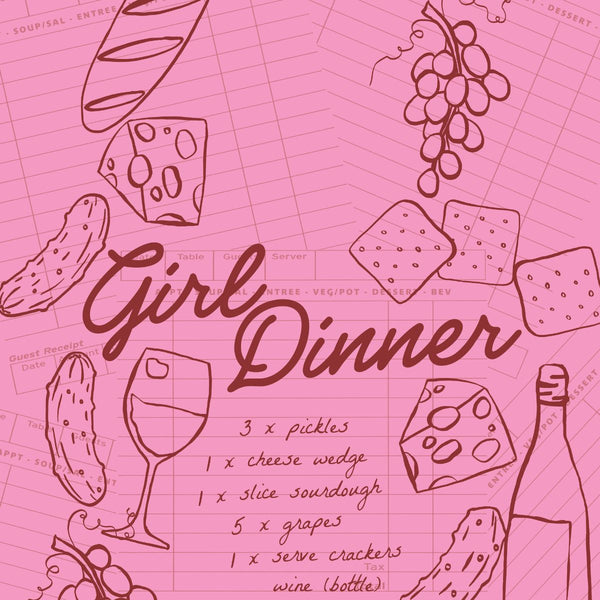 SOUP/SAL - ENTREE
DESSERT
Table Guest Server
APPT - SOUP/SAL - ENTREE - VEG/POT - DESSERT - BEV
Girl
Dinner
Guest Receipt
Date
3 x pickles
1 x cheese wedge
1 x slice sourdough
5 x grapes
1 x serve crackers
wine (bottle)
Tax
APPT - SOUP/
ENTREE - VEG/POT - DESSERT